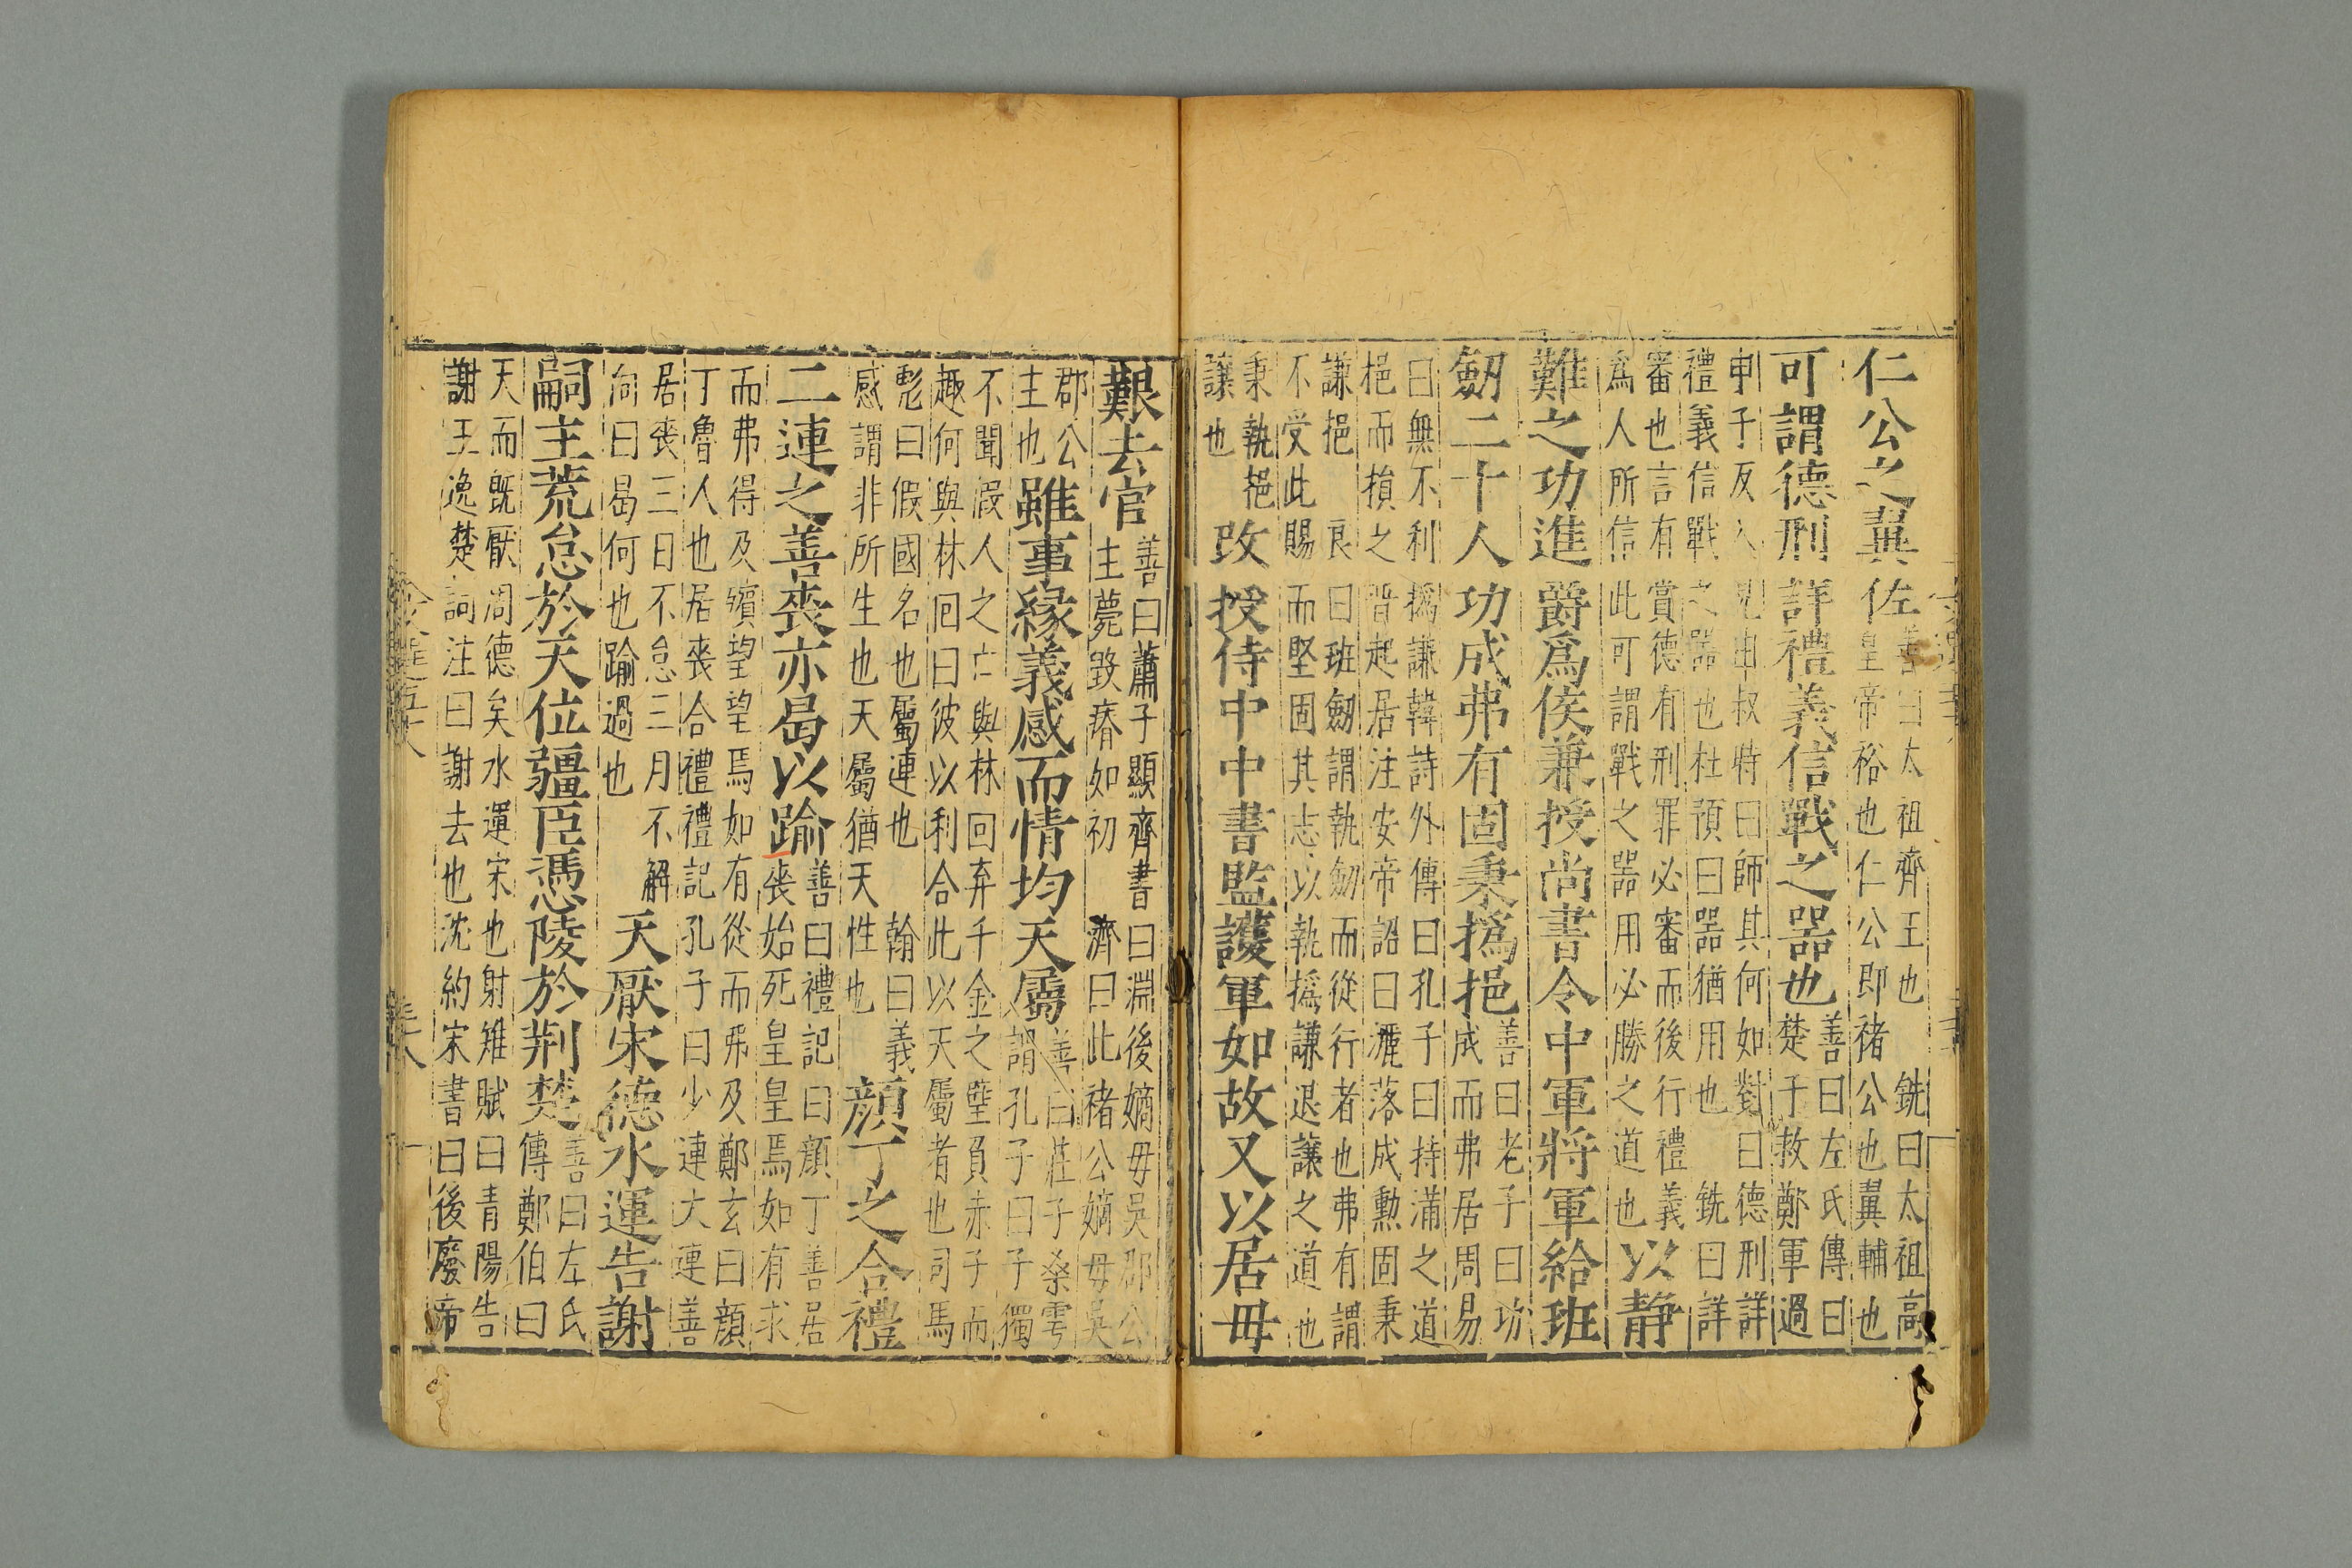 仁公之翼佐
善曰太祖齊王也 銑曰太祖高
皇帝裕也仁公即褚公也翼輔也
可謂德刑詳禮義信戰之器也
善曰左氏傳曰
楚子救鄭軍過
申子反入見申叔時曰師其何如對曰德刑詳
禮義信戰之器也杜預曰器猶用也 銑曰詳
審也言有賞德有刑罪必審而後行禮義
爲人所信此可謂戰之器用必勝之道也
以靜
難之功進爵爲侯兼授尚書令中軍將軍給班
劒二十人功成弗有固秉撝挹
善曰老子曰功
成而弗居周易
曰無不利撝謙韓詩外傳曰孔子曰持滿之道
挹而損之晉起居注安帝詔曰灑落成勲固秉
謙挹 良曰班劒謂執劒而從行者也弗有謂
不受此賜而堅固其志以執撝謙退讓之道也
秉執挹
讓也
改授侍中中書監護軍如故又以居母
艱去官
善曰蕭子顯齊書曰淵後嫡母吳郡公
主薨毀瘠如初 濟曰此褚公嫡母吳
郡公
主也
雖事緣義感而情均天屬
善曰莊子桑雩
謂孔子曰子獨
不聞假人之亡與林回弃千金之璧負赤子而
趣何與林回曰彼以利合此以天屬者也司馬
彪曰假國名也屬連也 翰曰義
感謂非所生也天屬猶天性也
顔丁之合禮
二連之善喪亦曷以踰
善曰禮記曰顔丁善居
喪始死皇皇焉如有求
而弗得及殯望望焉如有從而弗及鄭玄曰顔
丁魯人也居喪合禮禮記孔子曰少連大連善
居喪三日不怠三月不解
向曰曷何也踰過也
天厭宋德水運告謝
嗣主荒怠於天位彊臣憑陵於荆楚
善曰左氏
傳鄭伯曰
天而既厭周德矣水運宋也射雉賦曰青陽告
謝王逸楚詞注曰謝去也沈約宋書曰後廢帝